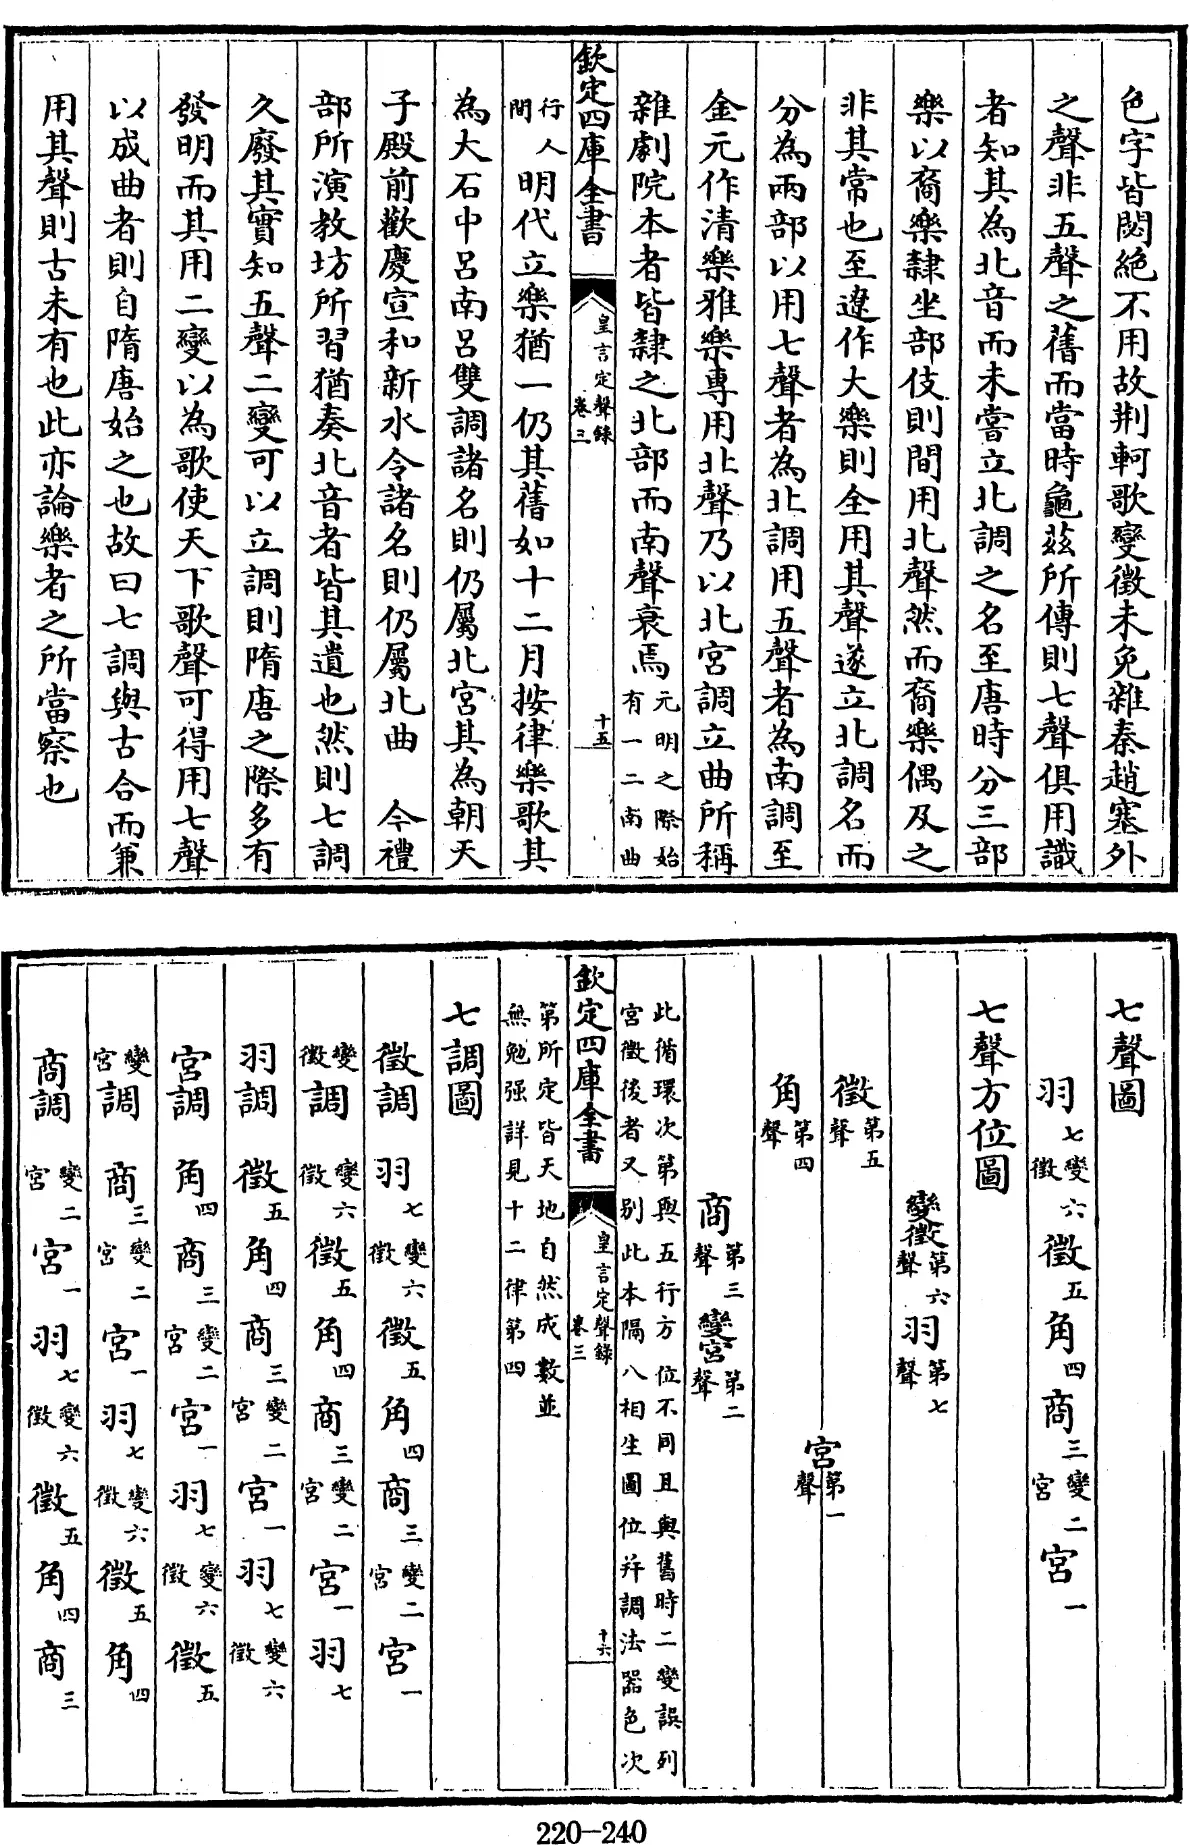 色字皆閟絶不用故荆軻歌變徵未免雜秦趙塞外
之聲非五聲之舊而當時龜兹所傳則七聲俱用識
者知其為北音而未嘗立北調之名至唐時分三部
樂以裔樂隸坐部伎則間用北聲然而裔樂偶及之
非其常也至遼作大樂則全用其聲遂立北調名而
分為兩部以用七聲者為北調用五聲者為南調至
金元作清樂雅樂專用北聲乃以北宫調立曲所稱
雜劇院本者皆隸之北部而南聲衰焉元明之際始
有一二南曲
欽定四庫全書
皇言定聲錄
卷三
十五
行人
間
明代立樂猶一仍其舊如十二月按律樂歌其
為大石中吕南吕雙調諸名則仍屬北宫其為朝天
子殿前歡慶宣和新水令諸名則仍屬北曲 今禮
部所演教坊所習猶奏北音者皆其遺也然則七調
久廢其實知五聲二變可以立調則隋唐之際多有
發明而其用二變以為歌使天下歌聲可得用七聲
以成曲者則自隋唐始之也故曰七調與古合而兼
用其聲則古未有也此亦論樂者之所當察也
七聲圖
羽七變徵六徵五角四商三變宫二宫一
七聲方位圖
變徵第六聲 羽第七聲
徵第五聲
宫第一聲
角第四聲
商第三聲 變宫第二聲
此循環次第與五行方位不同且與舊時二變誤列
宫徵後者又别此本隔八相生圖位并調法器色次
欽定四庫全書
皇言定聲錄
卷三
十六
第所定皆天地自然成數並
無勉强詳見十二律第四
七調圖
徵調 羽七變徵六徵五角四商三變宫二宫一
變徵調 變徵六徵五角四商三變宫二宫一羽七
羽調 徵五角四商三變宫二宫一羽七變徵六
宫調 角四商三變宫二宫一羽七變徵六徵五
變宫調 商三變宫二宫一羽七變徵六徵五角四
商調 變宫二宫一羽七變徵六徵五角四商三
220-240